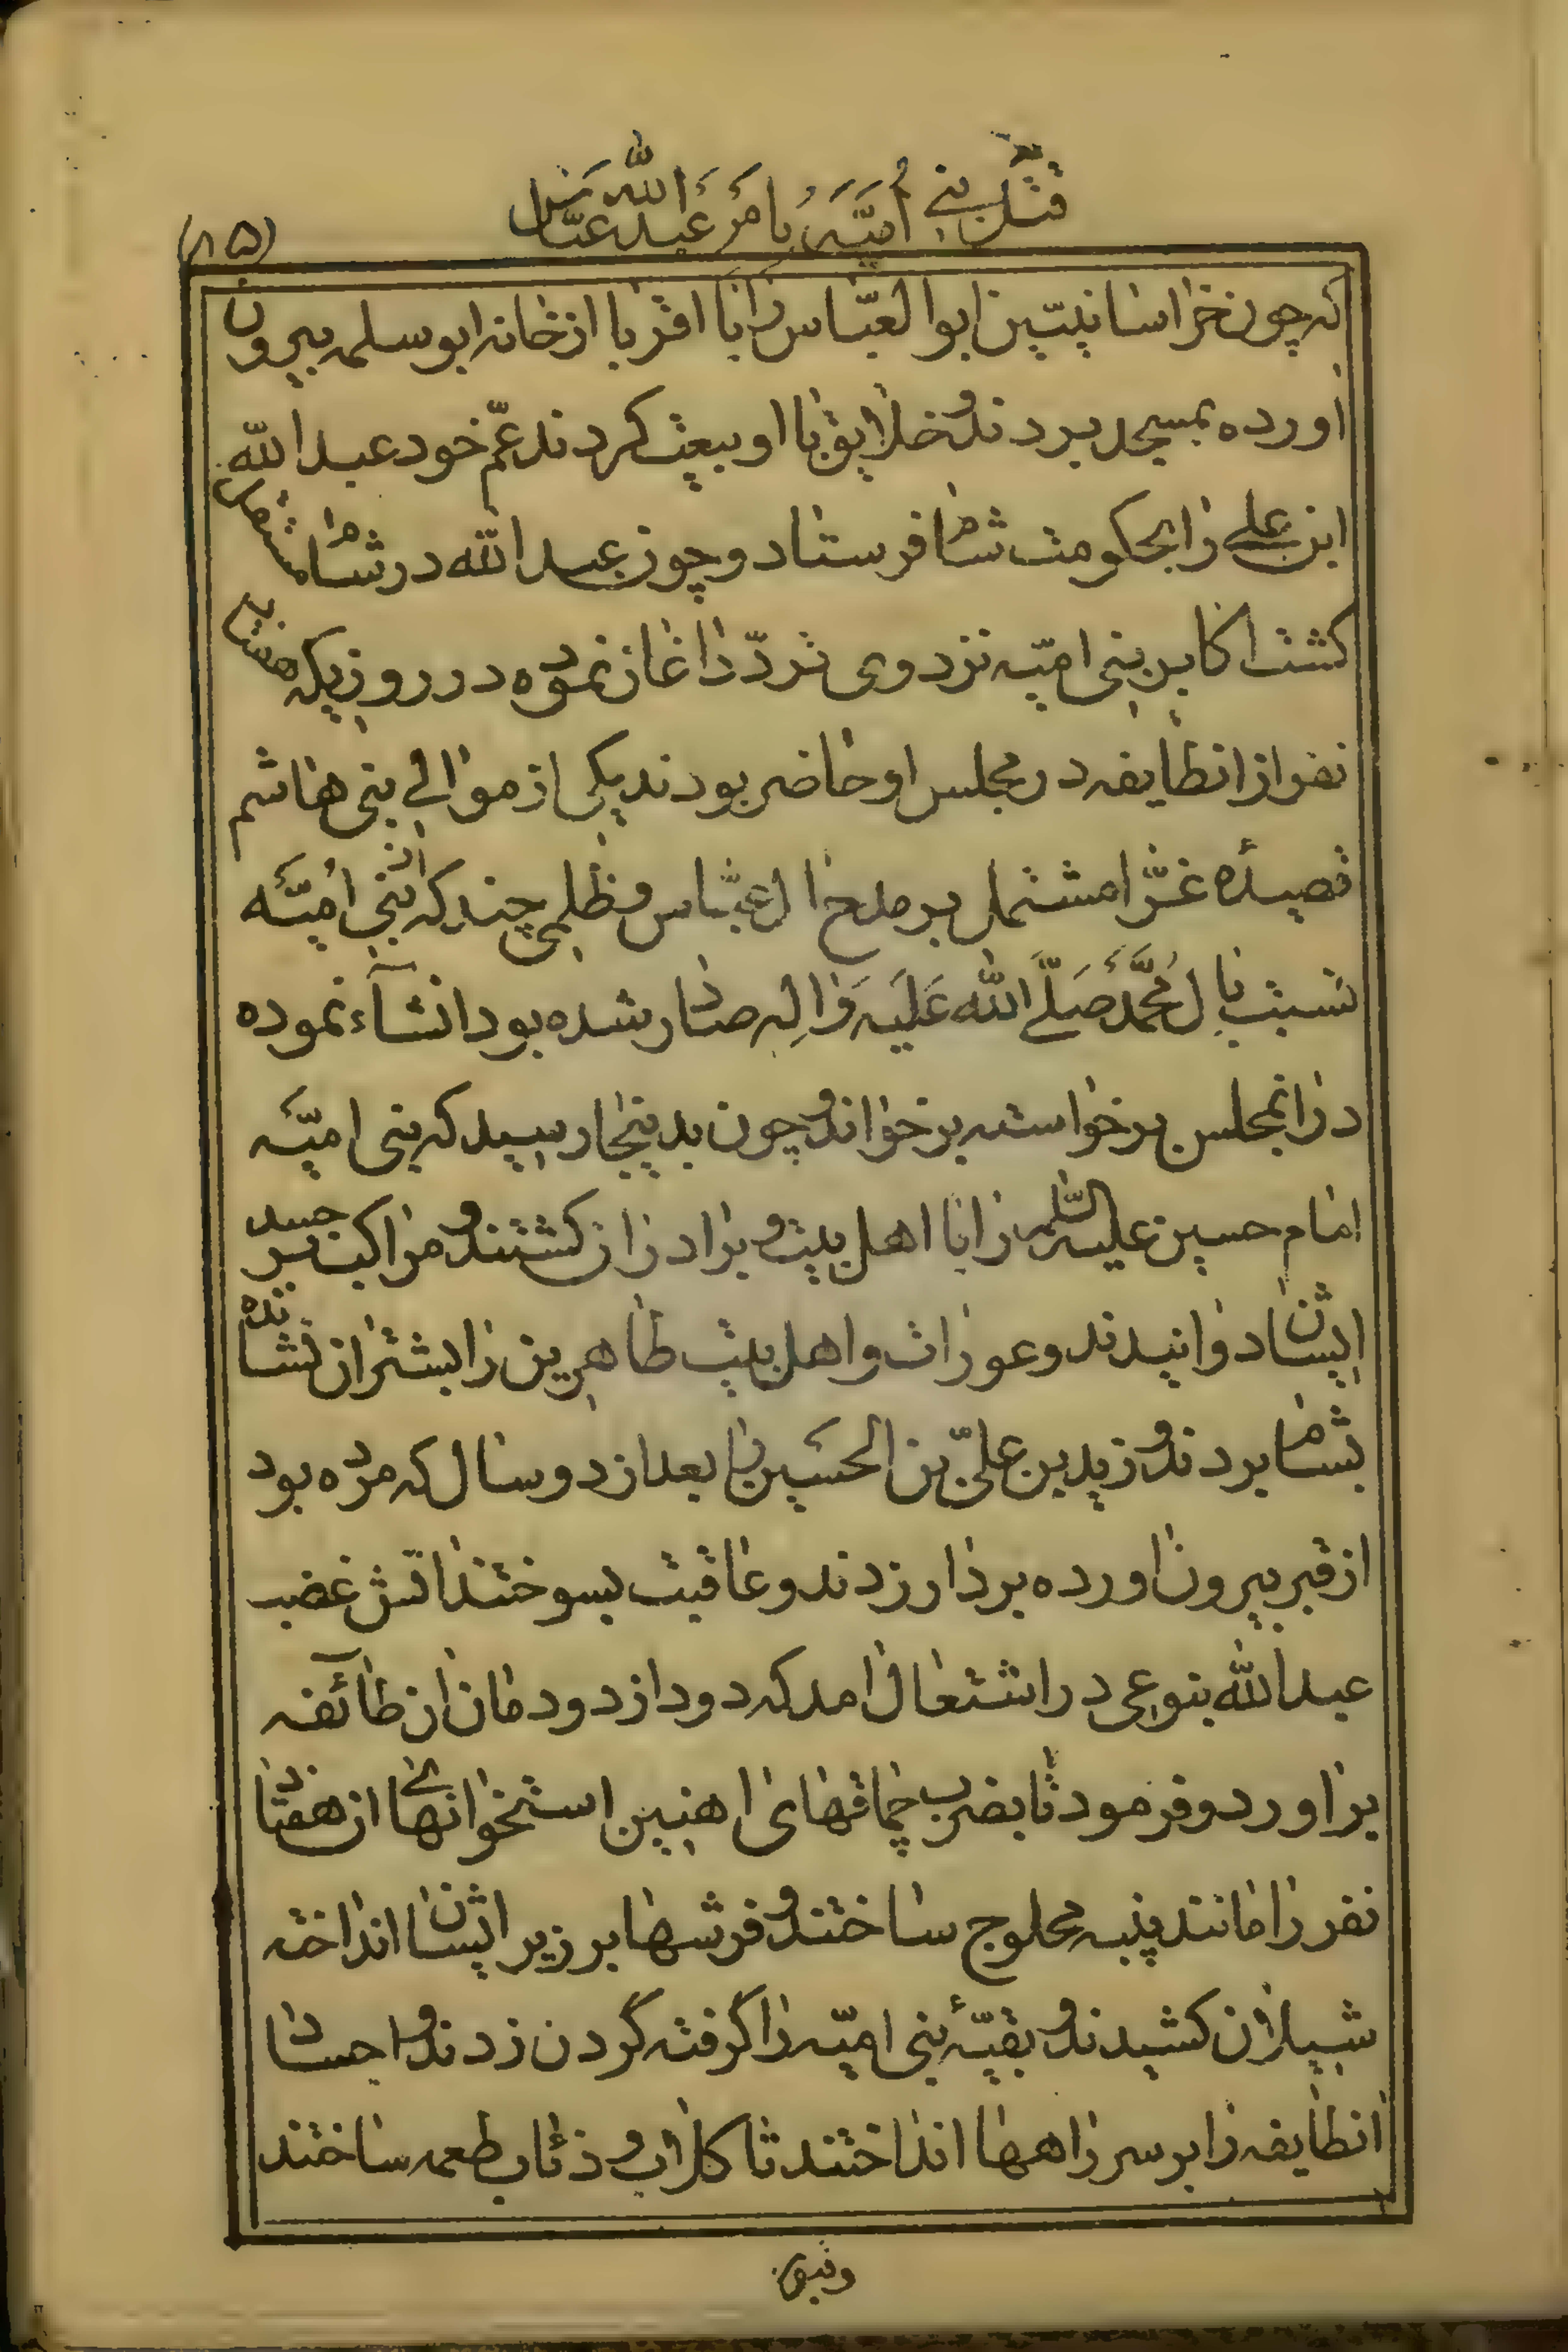 قتل بنی اُمَیَّه بامر عَبدالله عبّاس
(۸۵)
که چون خراسانیین ابوالعبّاس را با اقربا از خانه ابوسلمه بیرون
اورده بمسجد بردند و خلایق با او بیعت کردند عمّ خود عبدالله
ابن علی را بحکومت شام فرستاد و چون عبدالله در شام مستقل
کشت اکابر بنی امیّه نزد وی تردّد اغاز نموده در روزیکه هفتاد
نفر از انطایفه در مجلس او حاضر بودند یکی از موالی بنی هاشم
قصیدهٔ غرّا مشتمل بر مدح ال عبّاس و ظلمی چند که از بنی اُمیّه
نسبت بال مُحمَّد صَلَّی الله عَلَیه وَالِه صادر شده بود انشآء نموده
در انمجلس برخواسته برخواند و چون بدینجا رسید که بنی امیّه
امام حسین علیه السّلام را با اهل بیت و برادران کشتند و مراکب بر جسد
ایشان دوانیدند و عورات و اهل بیت طاهرین را بشتران نشانده
بشام بردند و زید بن علیّ بن الحسین را بعد از دو سال که مرده بود
از قبر بیرون اورده بر دار زدند و عاقبت بسوختند اتش غضب
عبدالله بنوعی در اشتعال امد که دود از دودمان ان طآئفه
براورد و فرمود تا بضرب چماقهای اهنین استخوانهای ان هفتاد
نفر را مانند پنبه محلوج ساختند و فرشها بر زیر ایشان انداخته
شیلان کشیدند و بقیّهٔ بنی امیّه را گرفته گردن زدند و اجساد
انطایفه را بر سر راهها انداختند تا کلاب و ذئاب طعمه ساختند